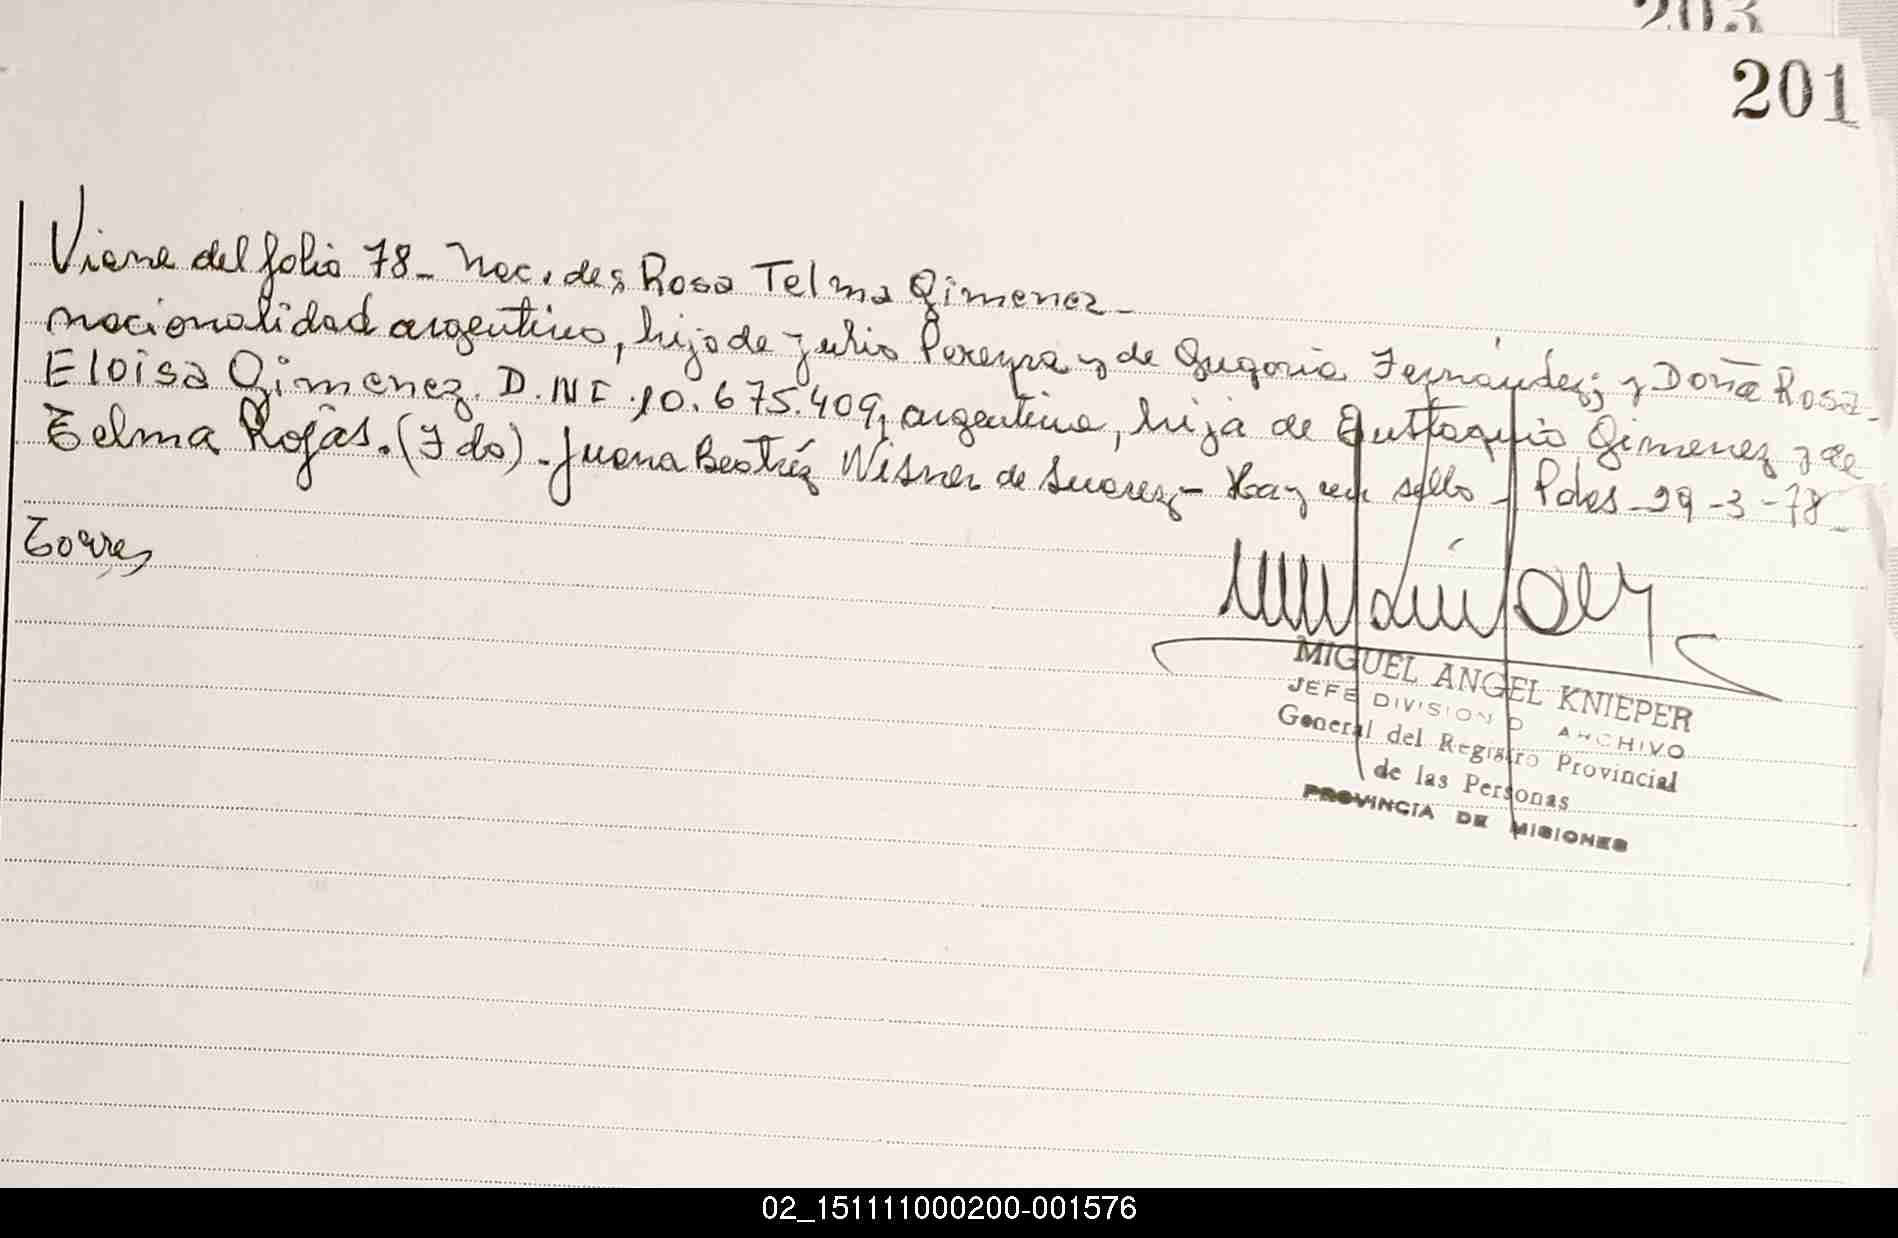 203
201
Viene del folio 78_ Nac. de; Rosa Telma Gimenez_
nacionalidad argentino, hijo de Julio Pereyra y de Gregoria Fernández; y Doña Rosa_
Eloisa Gimenez. D.N.I. 10.675.409, argentina, hija de Eustaquio Gimenez y de
Telma Rojas. (Fdo)_ Juana Beatríz Wisner de Suarez_ Hay un sello_ Pdas_29_3_78_
Torres
MIGUEL ANGEL KNIEPER
JEFE DIVISION D ARCHIVO
General del Registro Provincial
de las Personas
PROVINCIA DE MISIONES
02_151111000200-001576